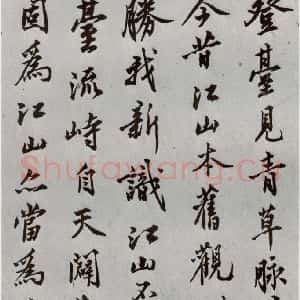 登臺見青草脉
今昔江山本舊觀
勝我新識江山不
臺流峙自天闢
固爲江山然當爲
Shufawang.Cn